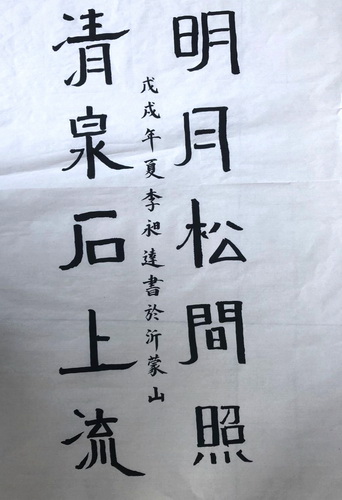 明月松間照
清泉石上流
戊戌年夏李昶達書於沂蒙山